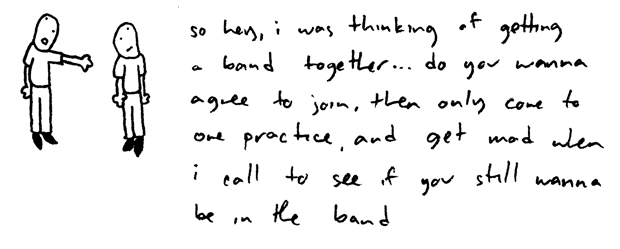 so hey, i was thinking of getting
a band together... do you wanna
agree to join, then only come to
one practice, and get mad when
i call to see if you still wanna
be in the band